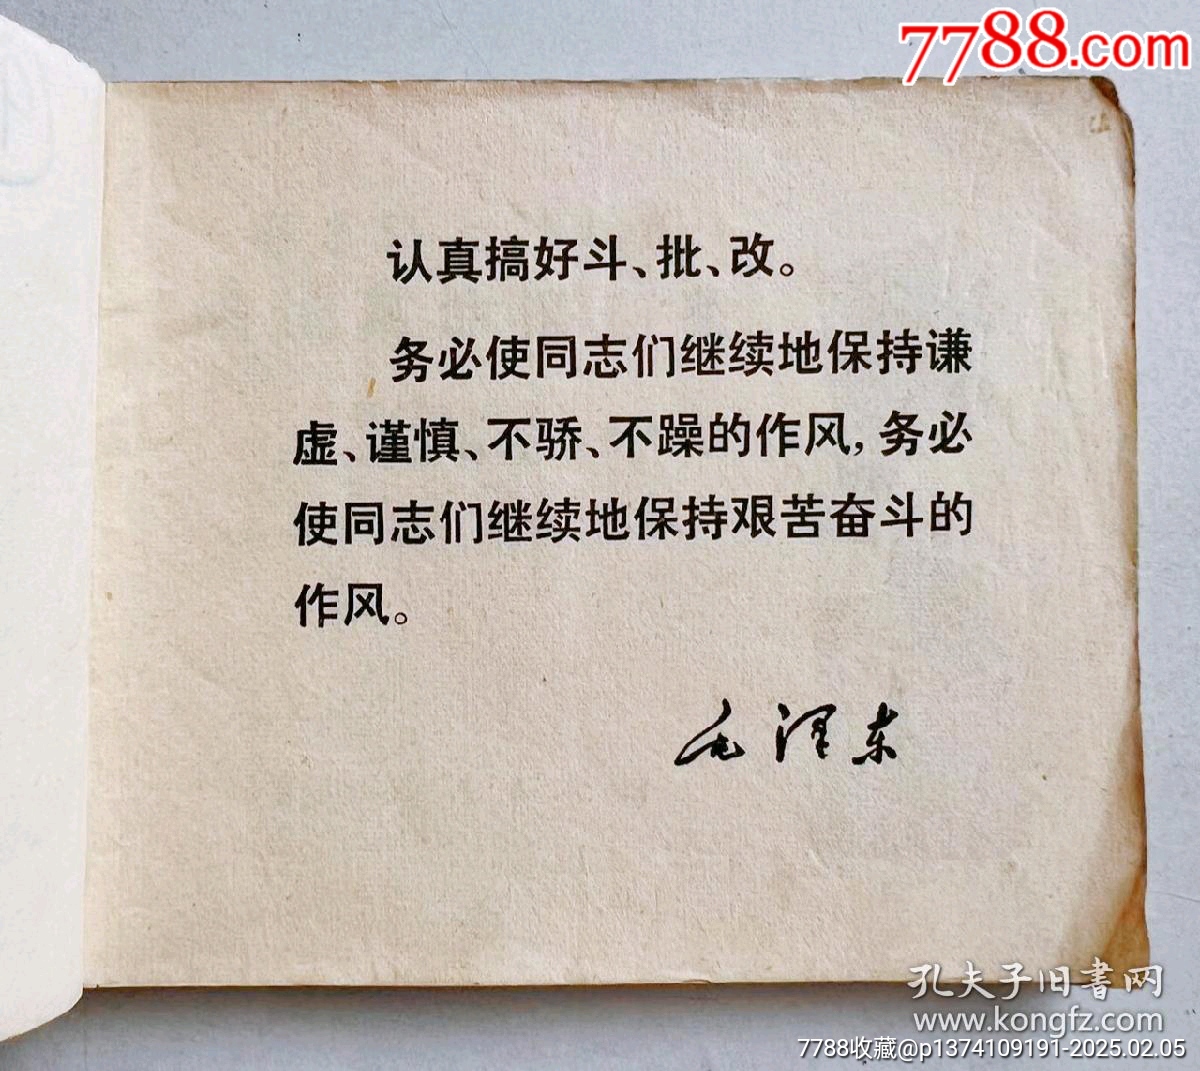 7788.com
认真搞好斗、批、改。
务必使同志们继续地保持谦
虚、谨慎、不骄、不躁的作风,务必
使同志们继续地保持艰苦奋斗的
作风。
毛泽东
孔夫子旧书网
www.kongfz.com
7788收藏@p1374109191-2025.02.05